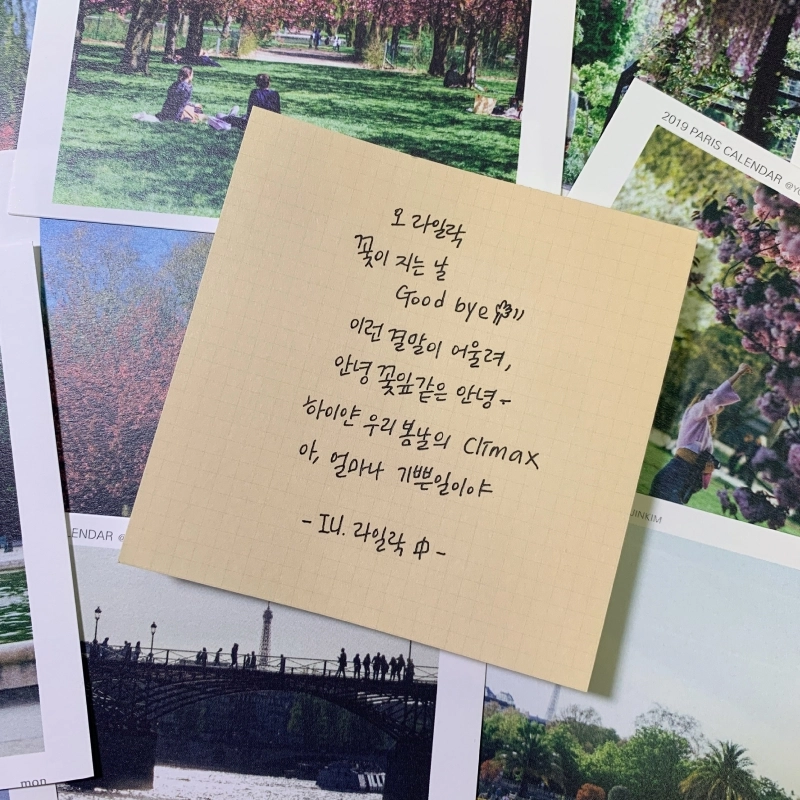 2019 PARIS CALENDAR
오 라일락
꽃이 지는 날
Good bye
이런 결말이 어울려,
안녕 꽃잎같은 안녕~
하이얀 우리 봄날의 Climax
아, 얼마나 기쁜일이야
- IU. 라일락 中 -
ENDAR @
JINKIM
mon